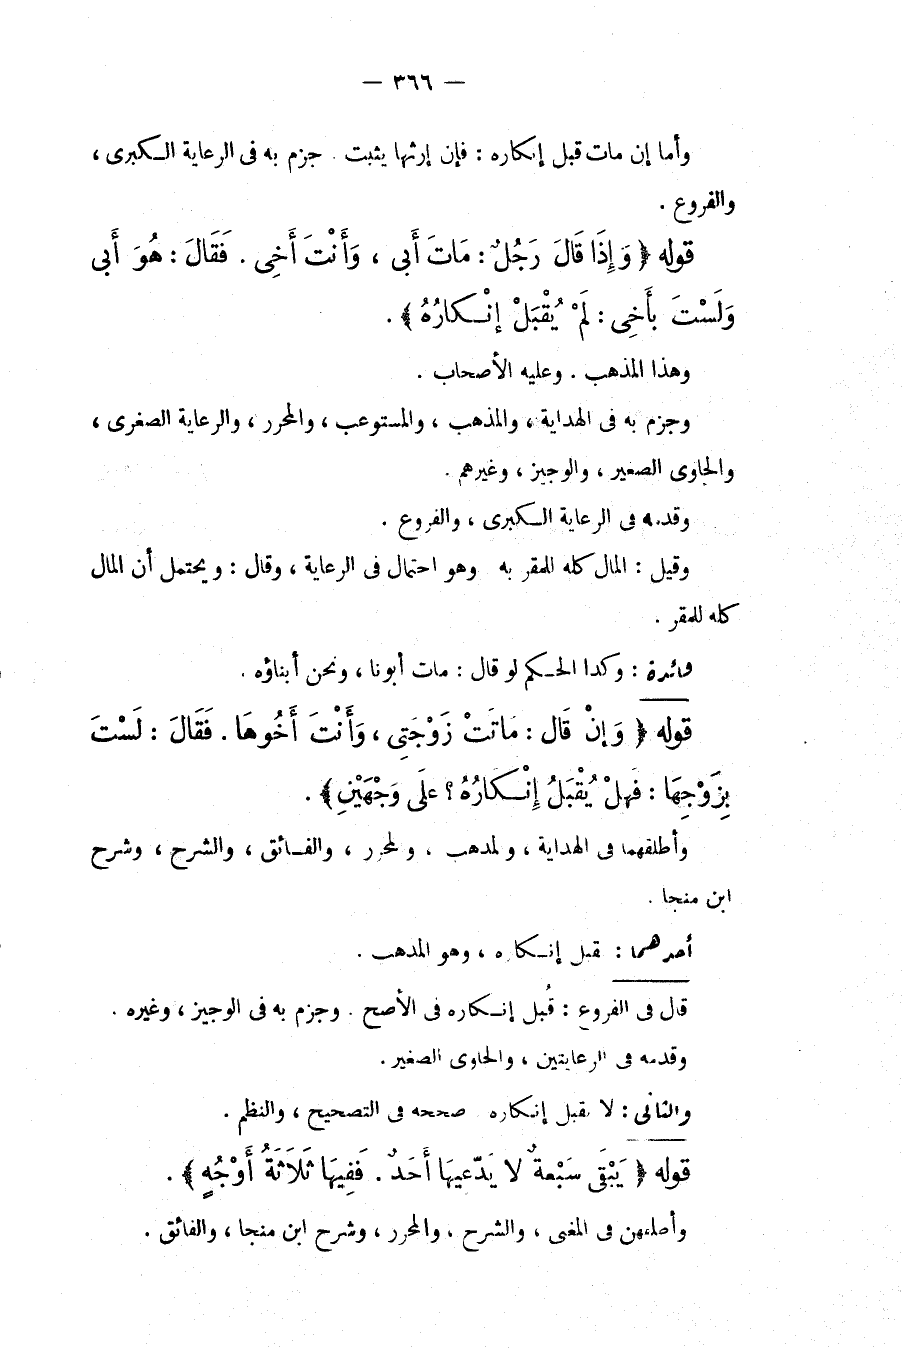 — ٣٦٦ —
وأما إن مات قبل إنكاره : فإن إرثها يثبت . جزم به فى الرعاية الكبرى ،
والفروع .
قوله ﴿ وَإِذَا قَالَ رَجُلٌ : مَاتَ أَبِى ، وَأَنْتَ أَخِى . فَقَالَ : هُوَ أَبِى
وَلَسْتَ بِأَخِى : لَمْ يُقْبَلْ إِنْكَارُهُ ﴾ .
وهذا المذهب . وعليه الأصحاب .
وجزم به فى الهداية ، والمذهب ، والمستوعب ، والمحرر ، والرعاية الصغرى ،
والحاوى الصغير ، والوجيز ، وغيرهم .
وقدمه فى الرعاية الكبرى ، والفروع .
وقيل : المال كله للمقر به وهو احتمال فى الرعاية ، وقال : ويحتمل أن المال
كله للمقر .
فائدة : وكذا الحكم لو قال : مات أبونا ، ونحن أبناؤه .
قوله ﴿ وَإِنْ قَالَ : مَاتَتْ زَوْجَتِى ، وَأَنْتَ أَخُوهَا . فَقَالَ : لَسْتَ
بِزَوْجِهَا : فَهَلْ يُقْبَلُ إِنْكَارُهُ ؟ عَلَى وَجْهَيْنِ ﴾ .
وأطلقهما فى الهداية ، والمذهب ، والمحرر ، والفائق ، والشرح ، وشرح
ابن منجا .
أحدهما : يقبل إنكاره ، وهو المذهب .
قال فى الفروع : قُبل إنكاره فى الأصح . وجزم به فى الوجيز ، وغيره .
وقدمه فى الرعايتين ، والحاوى الصغير .
والثانى : لا يقبل إنكاره صححه فى التصحيح ، والنظم .
قوله ﴿ يَبْقَى سَبْعةٌ لا يَدّعيهَا أَحَدٌ . فَفِيهَا ثَلَاثَةُ أَوْجُهٍ ﴾ .
وأطلقهن فى المغنى ، والشرح ، والمحرر ، وشرح ابن منجا ، والفائق .